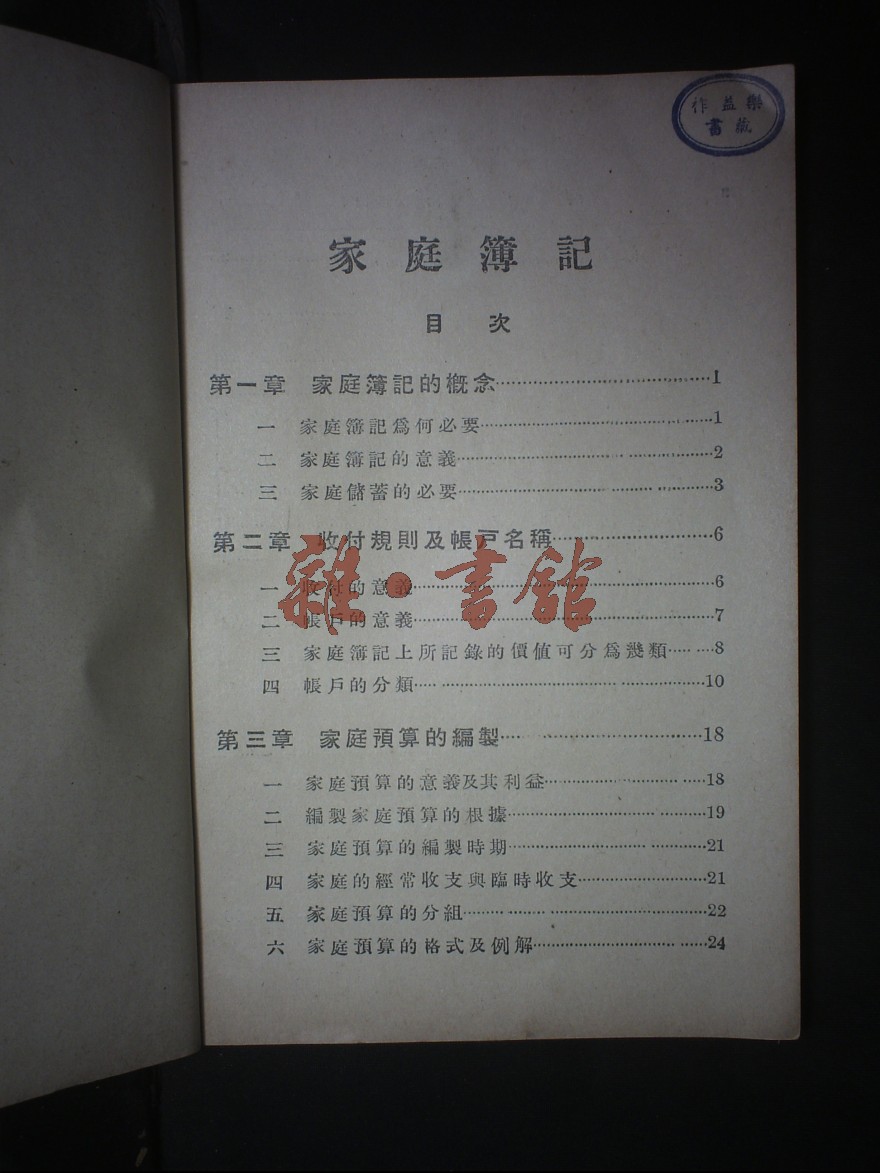 樂益作
藏書
家庭簿記
目次
第一章 家庭簿記的概念……1
一 家庭簿記爲何必要……1
二 家庭簿記的意義……2
三 家庭儲蓄的必要……3
第二章 收付規則及帳戸名稱……6
一 收付的意義……6
二 帳戸的意義……7
三 家庭簿記上所記錄的價值可分爲幾類……8
四 帳戸的分類……10
雜·書館
第三章 家庭預算的編製……18
一 家庭預算的意義及其利益……18
二 編製家庭預算的根據……19
三 家庭預算的編製時期……21
四 家庭的經常收支與臨時收支……21
五 家庭預算的分組……22
六 家庭預算的格式及例解……24